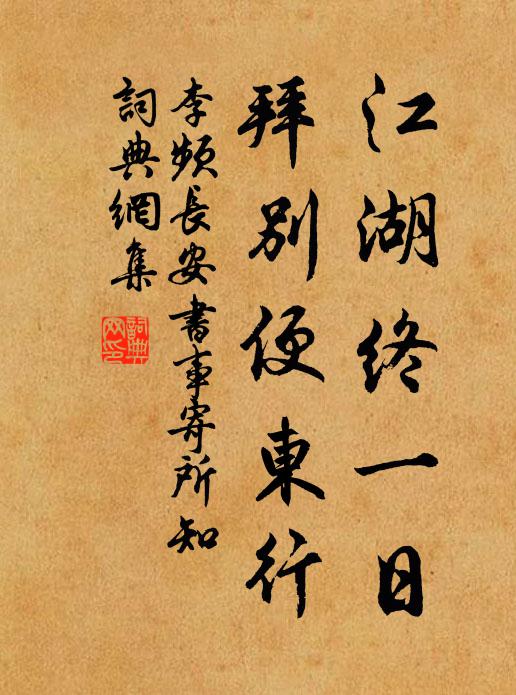 江湖終一日
拜別便東行
李頻長安書事寄所知
詞典網集
詞典网印